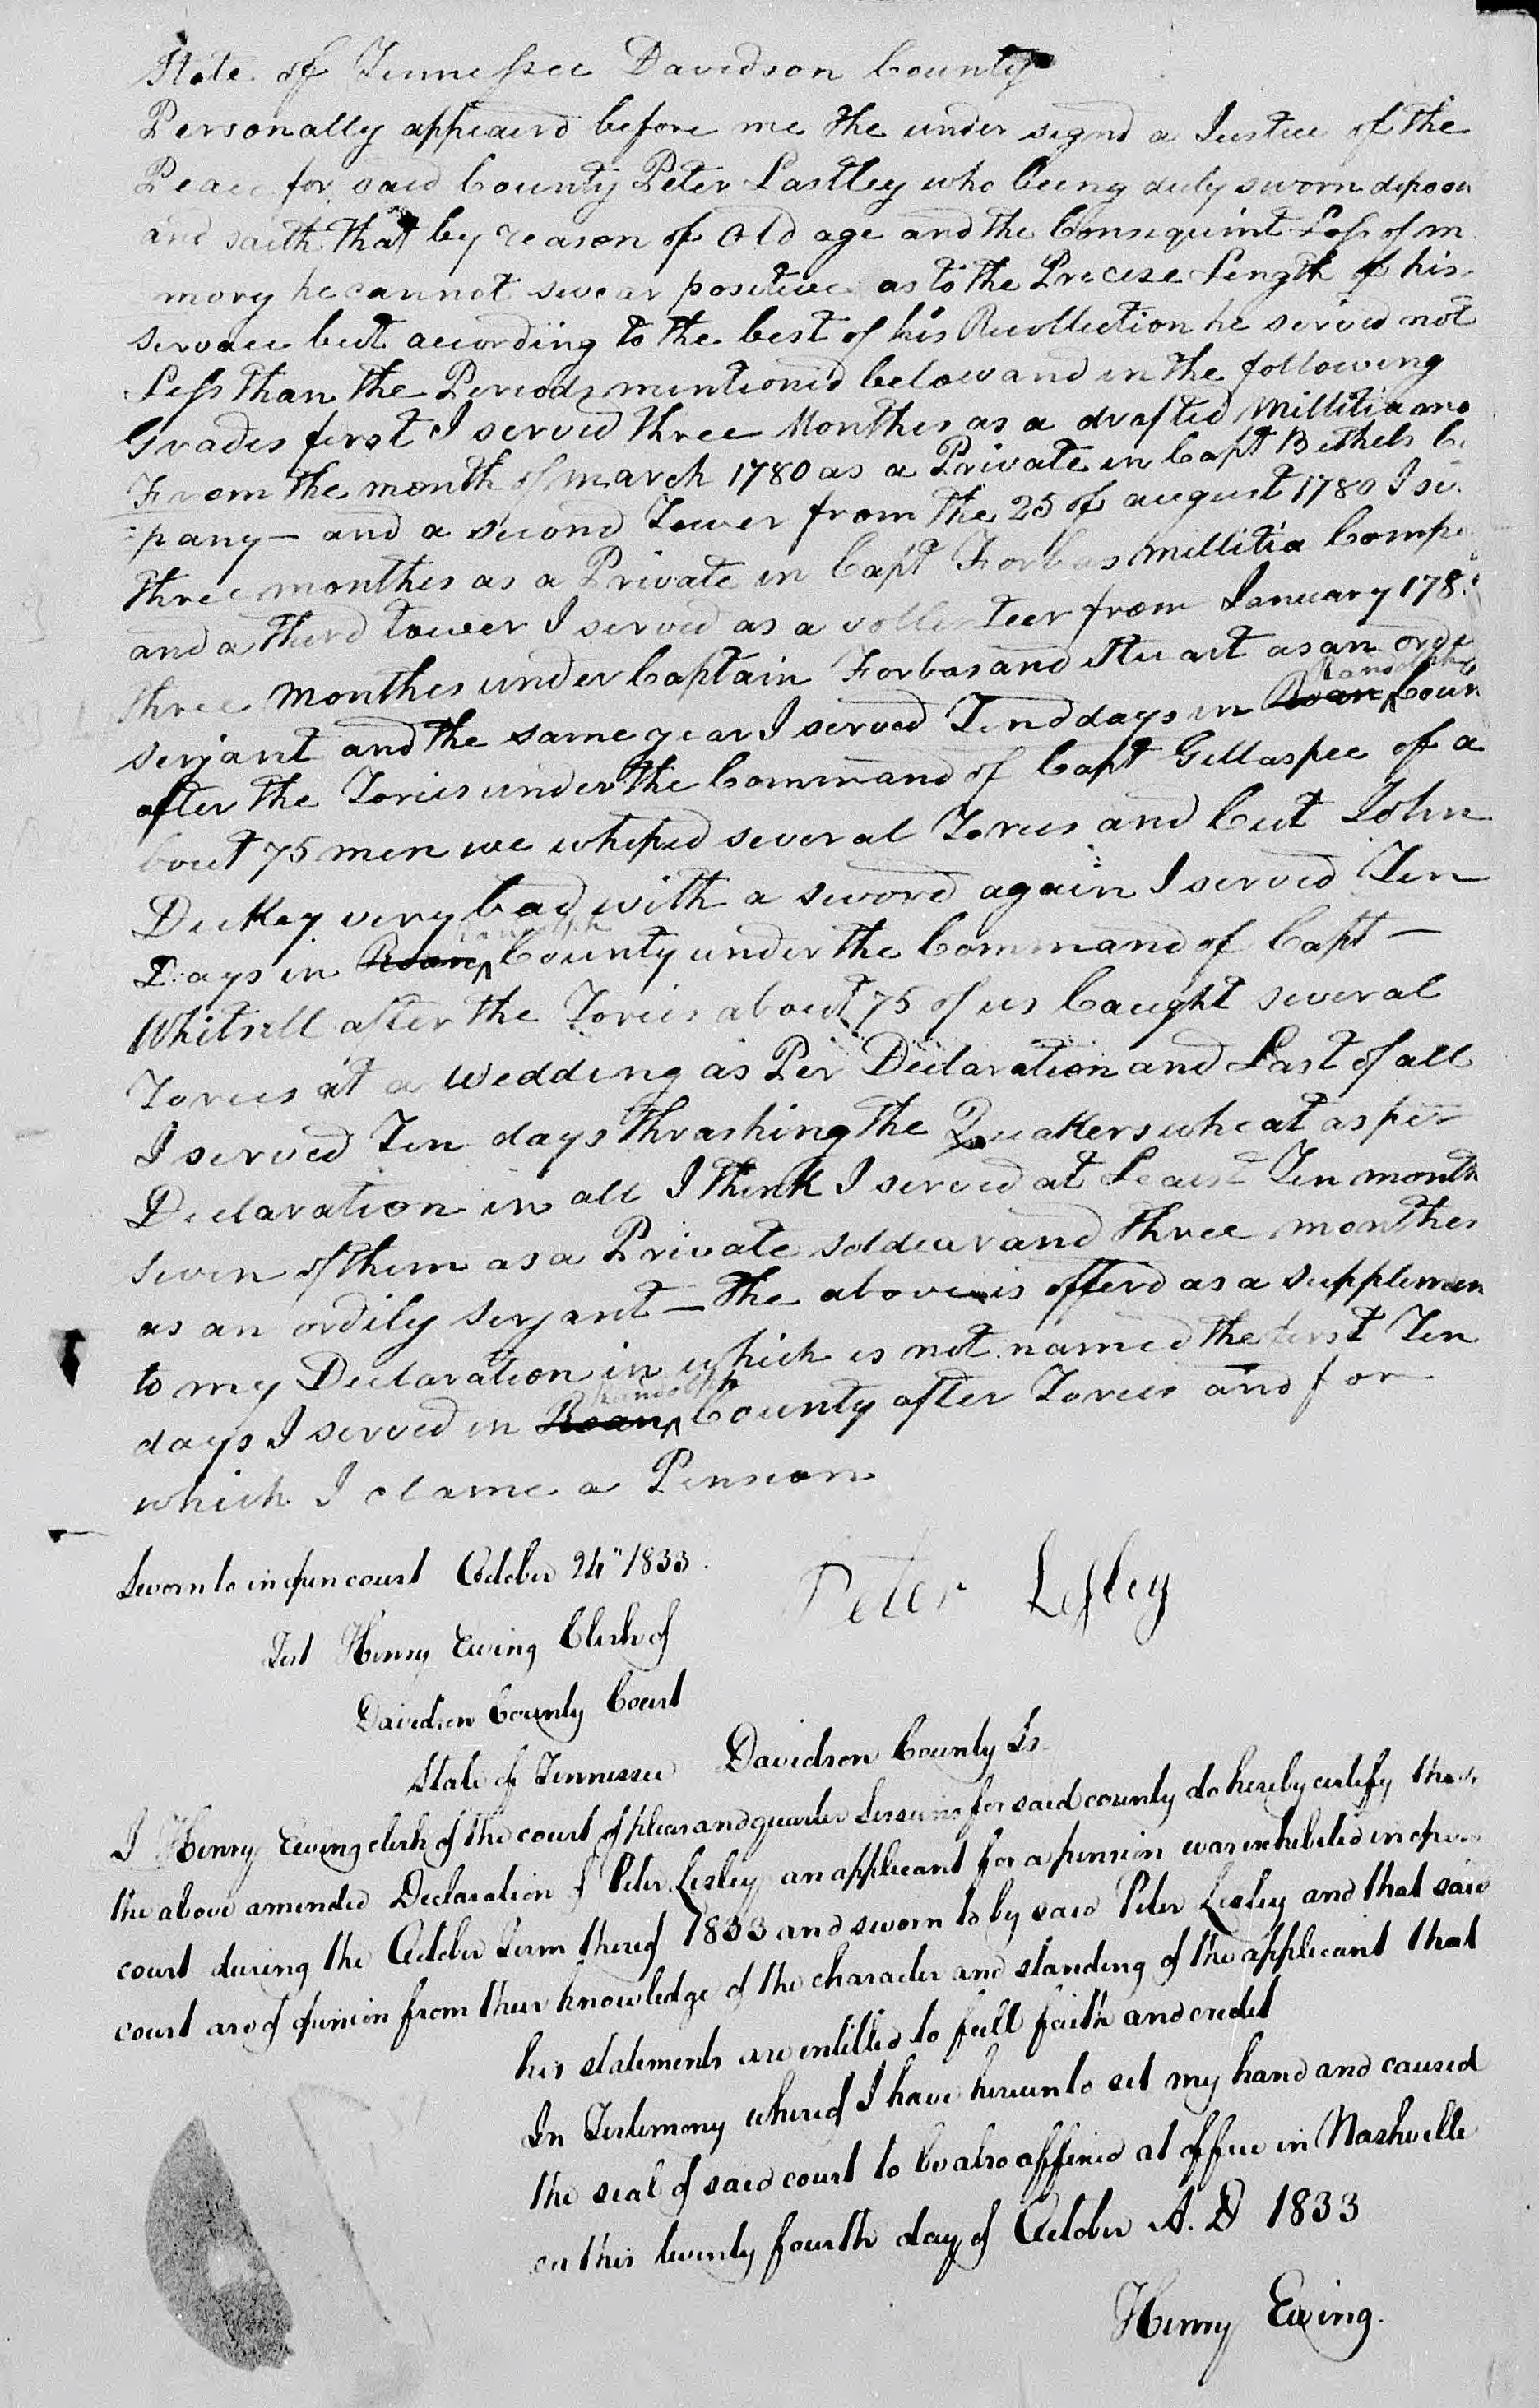 State of Tennessee Davidson County
Personally appeaird before me the under signd a Justice of the
Peace for said County Peter Lastley who being duly sworn deposeth
and saith that by reason of Old age and the Consequint Loss of m
mory he cannot swear positive as to the Precise Length of his
servace but according to the best of his Recollection he served not
Less than the Periods mentioned below and in the following
Grades first I served three Monthes as a drafted Millitia
From the month of march 1780 as a Private in Capt Bethels
pany — and a second Tower from the 25 of august 1780 I
three monthes as a Private in Capt Forbas millitia
and a third tower I served as a from January 178
three Monthes under Captain Forbas and Stuart as an
serjant and the same year I served Tend days in Roan Randolph Coun
after the Tories under the Command of Capt Gillaspee of a
bout 75 men we whiped several Tories and Cut John
Dickey very bad with a sword again I served Ten
Days in Roan Randolph County under the Command of Capt —
Whitsell after the Tories about 75 of us Caught several
Tories at a Wedding as Per Declaration and Last of all
I served Ten days thrashing the Quakers wheat as per
Declaration in all I think I served at Least Ten month
seven of them as a Private soldear and three monthes
as an ordily serjant — the above isofferd as a supplemen
to my Declaration in which is not named the first Ten
days I served in Roan Randolph County after Tories and for
which I clame a Pension
Sworn to in open court October 24" 1833.
Peter Lesley
Test Henry Ewing Clerk of
Davidson County Court
State of Tennessee Davidson County Ss
I Henry Ewing clerk of the court of pleas and quarter Sessions for said county do hereby certify that
the above amended Declaration of Peter Lesley an applicant for a pension was exhibited in open
court during the October Term thereof 1833 and sworn to by said Peter Lesley and that said
court are of opinion from their knowledge of the character and standing of the applicant that
his statements are entitled to full faith and credit
In Testimony whereof I have hereunto set my hand and caused
the seal of said court to be also affixed at office in Nashville
on this twenty fourth day of October A.D 1833
Henry Ewing.